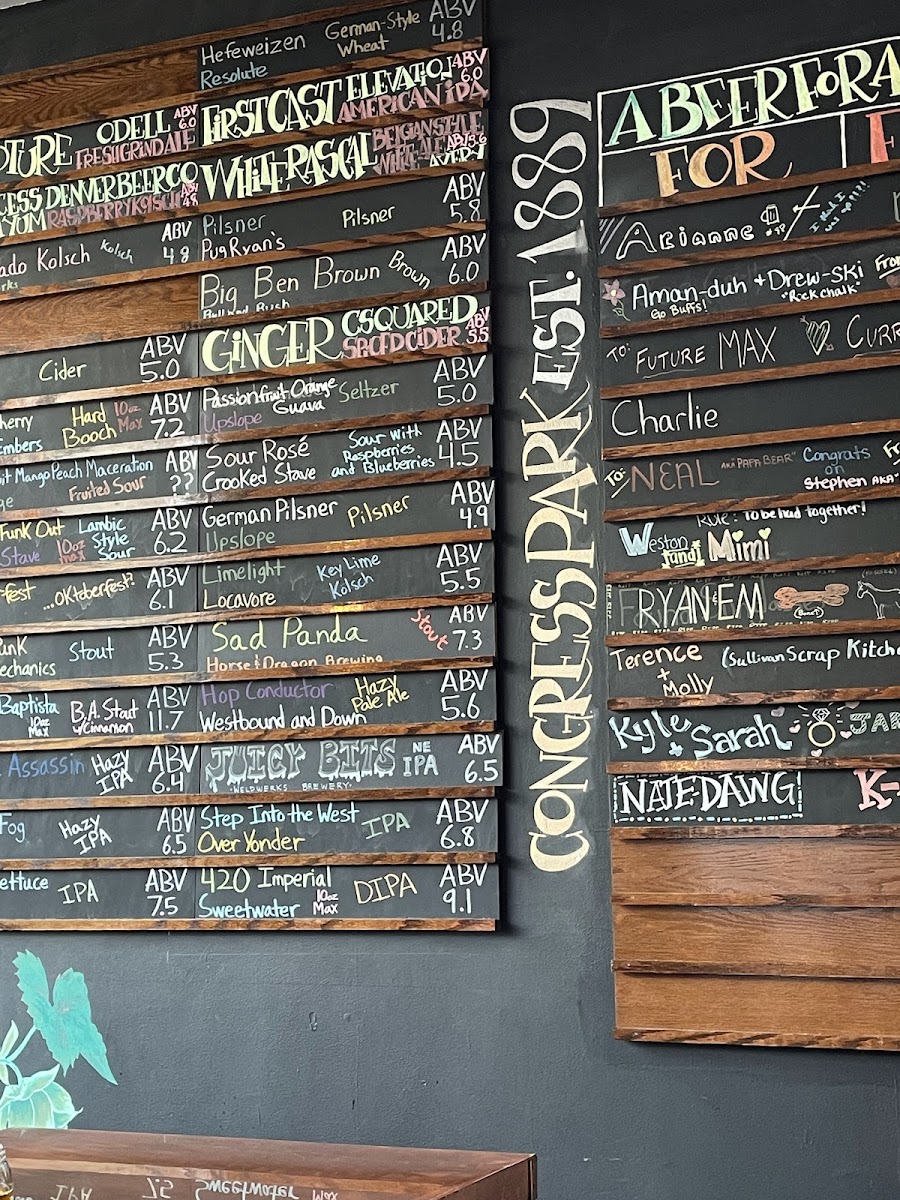 Hefeweizen German-Style Wheat ABV 4.8
Resolute
ODELL ABV 6.0
FRESHGRIND ALE
FIRST CAST ELEVATION ABV 6.0
AMERICAN IPA
DENVER BEER CO
RASPBERRY KÖLSCH ABV 4.8
WHITE RASCAL BELGIAN STYLE
WHITE ALE ABV 5.6
AVERY
Kolsch Kolsch ABV 4.8
Pilsner Pilsner ABV 5.8
Pug Ryan's
Big Ben Brown Brown ABV 6.0
GINGER CSQUARED ABV 5.5
CIDER
Cider ABV 5.0
Passionfruit Orange Guava Seltzer ABV 5.0
Upslope
Hard Booch 10oz Max ABV 7.2
Sour Rosé Sour with Raspberries and Blueberries ABV 4.5
Crooked Stave
Mango Peach Maceration ABV ??
Fruited Sour
German Pilsner Pilsner ABV 4.9
Upslope
Funk Out Lambic Style Sour ABV 6.2
Stave 10oz max
Limelight Key Lime Kölsch ABV 5.5
Locavore
...Oktoberfest? ABV 6.1
Sad Panda Stout ABV 7.3
Horse & Dragon Brewing
Stout ABV 5.3
Hop Conductor Hazy Pale Ale ABV 5.6
Westbound and Down
Baptista B.A. Stout w/Cinnamon ABV 11.7
10oz Max
JUICY BITS NE IPA ABV 6.5
WELDWERKS BREWERY
Assassin Hazy IPA ABV 6.4
Step Into the West IPA ABV 6.8
Over Yonder
Fog Hazy IPA ABV 6.5
420 Imperial DIPA ABV 9.1
Sweetwater 10oz Max
IPA ABV 7.5
CONGRESS PARK EST. 1889
A BEER FOR A
FOR
Arianne
Aman-duh + Drew-ski
Go Buffs! "Rock chalk"
TO: FUTURE MAX
Charlie
To: NEAL AKA "PAPA BEAR" Congrats on
Stephen AKA
RULE: To be had together!
Weston and Mimi
RYAN EM
Terence + Molly (Sullivan Scrap
Kyle + Sarah
NATE DAWG